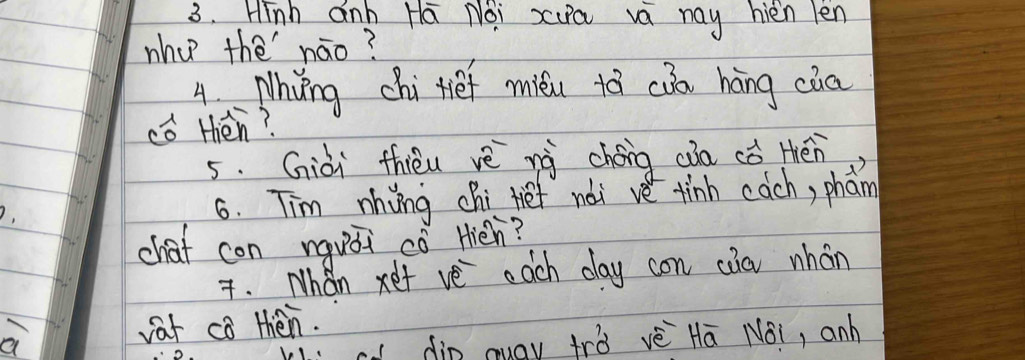 3. Hình ảnh Hà Nội xưa và nay hiện lên
như thế nào?
4. Những chi tiết miêu tả cửa hàng của
cô Hiền?
5. Giới thiệu về ng chồng của cô Hiền
6. Tìm những chi tiết nói về tính cách, phẩm
chất con người cô Hiền?
7. Nhận xét về cách dạy con của nhân
vật cô Hiền.
dịp quay trở về Hà Nội, anh